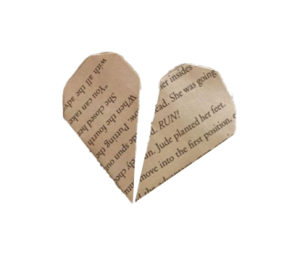 with all the adv
"You can take
She closed her
When the fourth
Putting the
spun out
dy che
er insides
ad. She was going
d. RUN!
m. Jude planted her feet.
move into the first position, e